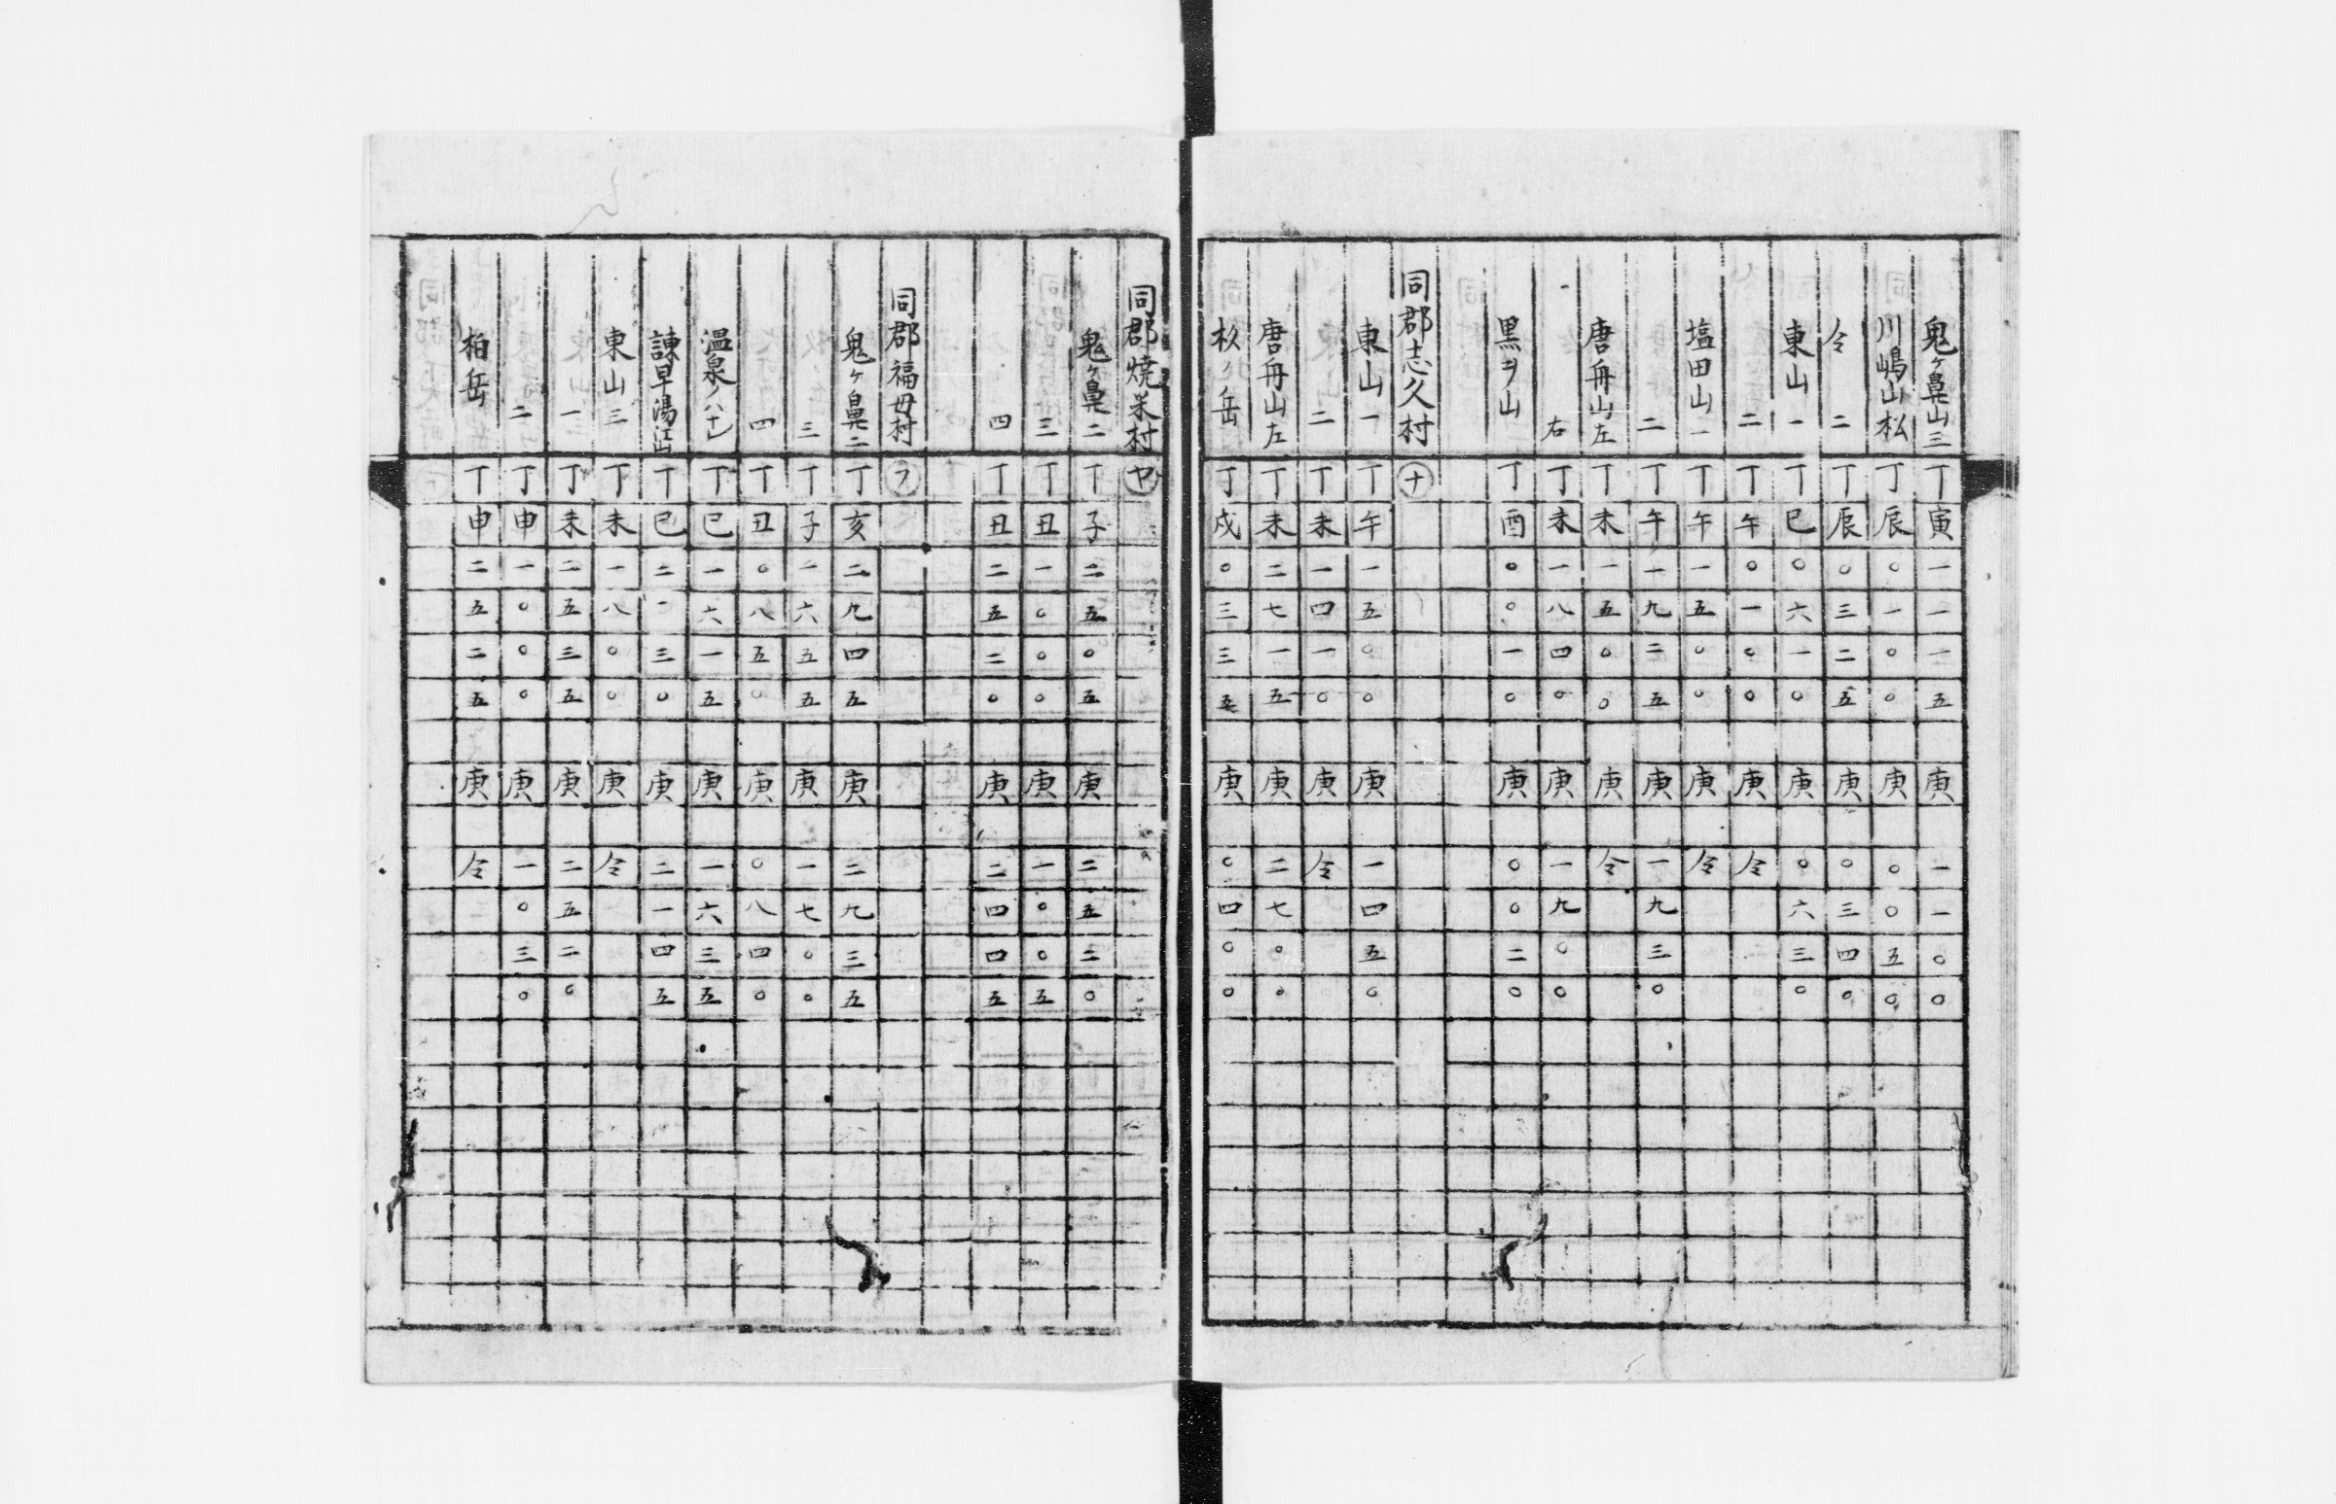 鬼ヶ鼻山三 丁 寅 一 一 一 五 庚 一 一 〇 〇
川嶋山松 丁 辰 〇 一 〇 〇 庚 〇 〇 五 〇
仝 二 丁 辰 〇 三 二 五 庚 〇 三 四 〇
東山一 丁 巳 〇 六 一 〇 庚 〇 六 三 〇
二 丁 午 〇 一 〇 〇 庚 仝
塩田山一 丁 午 一 五 〇 〇 庚 仝
二 丁 午 一 九 二 五 庚 一 九 三 〇
唐舟山左 丁 未 一 五 〇 〇 庚 仝
右 丁 未 一 八 四 〇 庚 一 九 〇 〇
黒ヲ山 丁 酉 〇 〇 一 〇 庚 〇 〇 二 〇
同郡志久村 十
東山一 丁 午 一 五 〇 〇 庚 一 四 五 〇
二 丁 未 一 四 一 〇 庚 仝
唐舟山左 丁 未 二 七 一 五 庚 二 七 〇 〇
杦ノ岳 丁 戌 〇 三 三 五 庚 〇 四 〇 〇
同郡焼米村 ヤ
鬼ヶ鼻二 丁 子 二 五 〇 五 庚 二 五 二 〇
三 丁 丑 一 〇 〇 〇 庚 一 〇 〇 五
四 丁 丑 二 五 二 〇 庚 二 四 四 五
同郡福母村 フ
鬼ヶ鼻二 丁 亥 二 九 四 五 庚 二 九 三 五
三 丁 子 一 六 五 五 庚 一 七 〇 〇
四 丁 丑 〇 八 五 〇 庚 〇 八 四 〇
温泉ノ八十レ 丁 巳 一 六 一 五 庚 一 六 三 五
諌早湯江山 丁 巳 二 一 三 〇 庚 二 一 四 五
東山三 丁 未 一 八 〇 〇 庚 仝
一 丁 未 二 五 三 五 庚 二 五 二 〇
二 丁 申 一 〇 〇 〇 庚 一 〇 三 〇
柏岳 丁 申 二 五 二 五 庚 仝